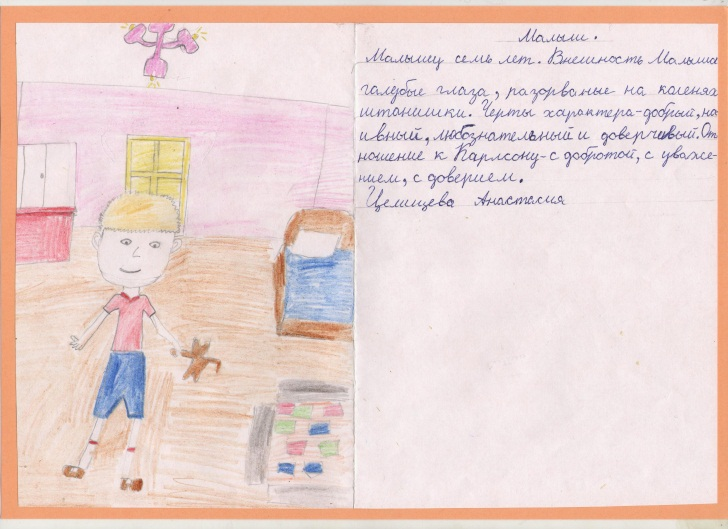 Малыш.
Малышу семь лет. Внешность Малыша
галубые глаза, разорваные на коленях
штанишки. Черты характера-добрый, на
ивный, любознательный и доверчивый. От
ношение к Карлсону-с добротой, с уваже-
нием, с доверием.
Целищева Анастасия